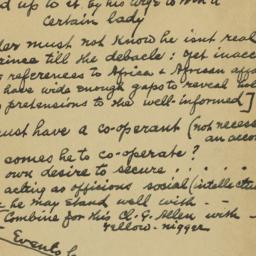 d up to it by his urge to win a
certain lady
der must not know he isnt real
prince till the debacle: yet inacc
references to Africa & African affa
have wide enough gaps to reveal
pretensions to the well-informed]
must have a co-operant (not necess
an acco
comes he to co-operate?
own desire to secure . . . . .
acting as officious social (intellectual
= he may stand well with - -
Combine for this Cl. G. Allen with -
Yellow-nigger
Events